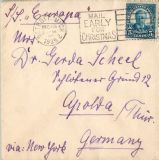 S/S "Europa"
MAIL
EARLY
FOR
CHRISTMAS
Mrs.
Dr. Gerda Scheel
Schlötener Grund 12
Apolda / Thür.
Germany
via: New York